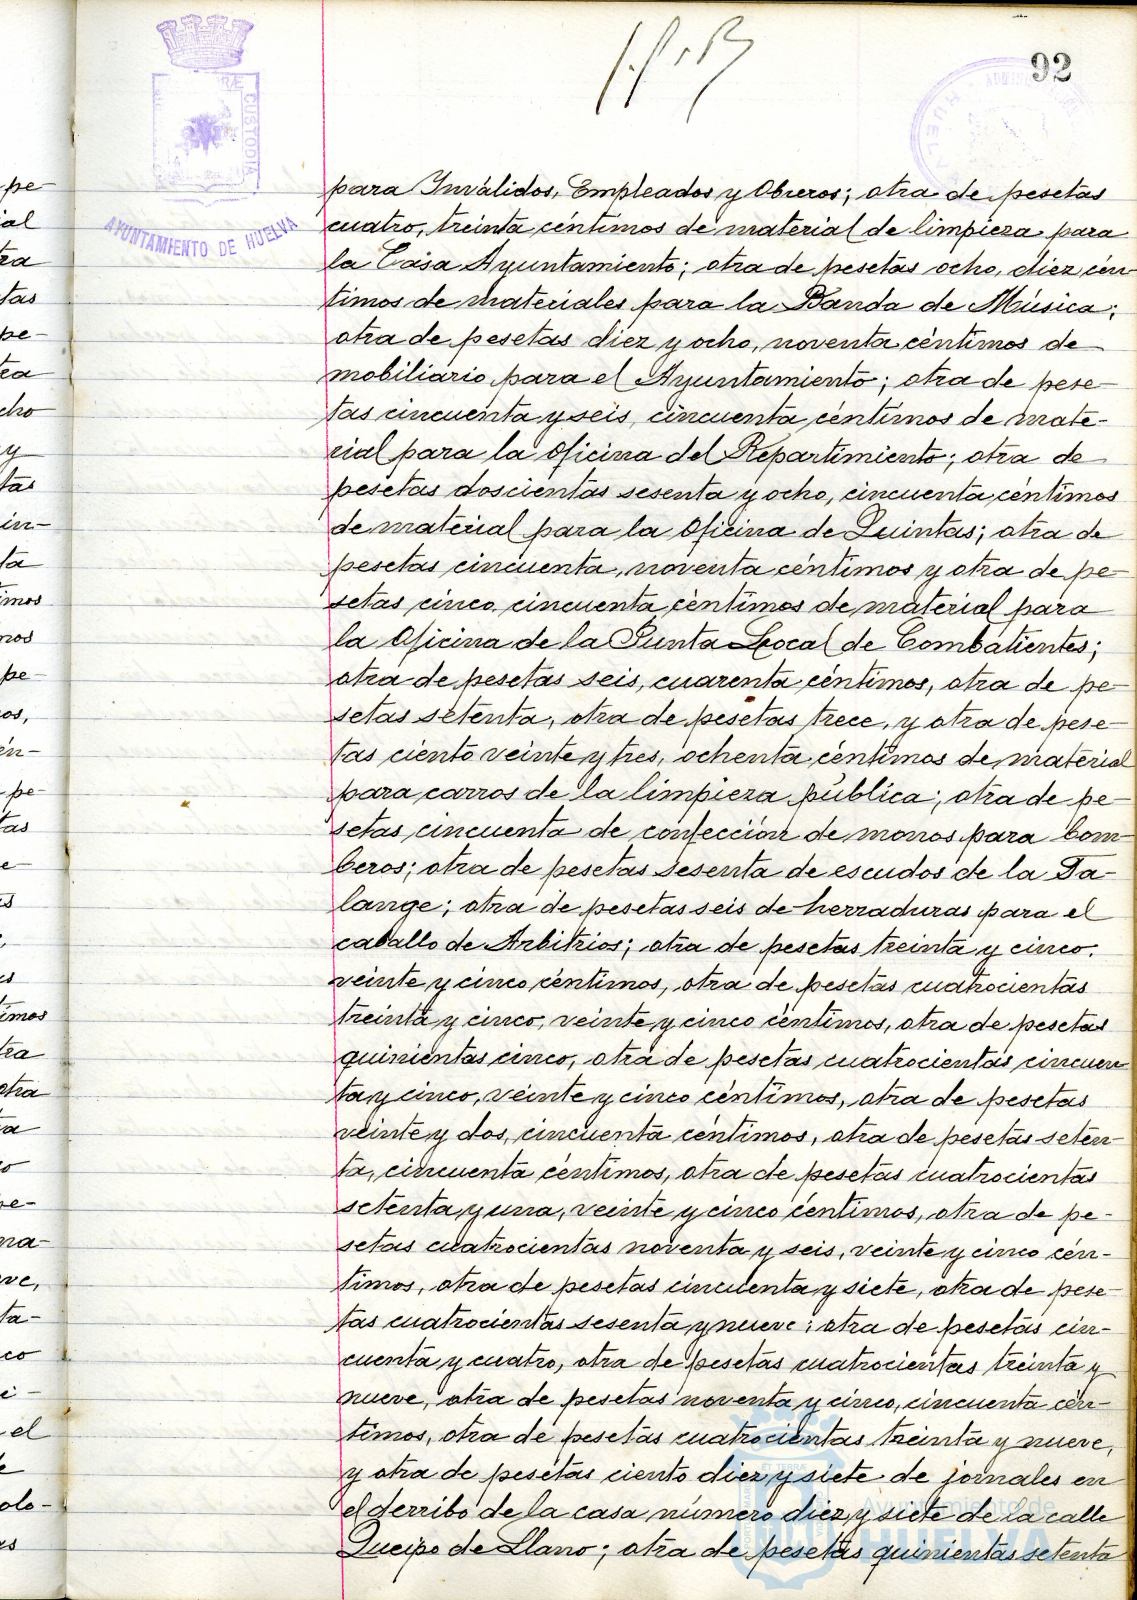 92
AYUNTAMIENTO DE HUELVA
para Inválidos, Empleados y Obreros; otra de pesetas
cuatro, treinta céntimos de material de limpieza para
la Casa Ayuntamiento; otra de pesetas ocho, diez cén-
timos de materiales para la Banda de Música;
otra de pesetas diez y ocho, noventa céntimos de
mobiliario para el Ayuntamiento; otra de pese-
tas cincuenta y seis, cincuenta céntimos de mate-
rial para la Oficina del Repartimiento; otra de
pesetas doscientas sesenta y ocho, cincuenta céntimos
de material para la Oficina de Quintas; otra de
pesetas cincuenta, noventa céntimos y otra de pe-
setas cinco, cincuenta céntimos de material para
la Oficina de la Junta Local de Combatientes;
otra de pesetas seis, cuarenta céntimos, otra de pe-
setas setenta, otra de pesetas trece, y otra de pese-
tas ciento veinte y tres, ochenta céntimos de material
para carros de la limpieza pública; otra de pe-
setas cincuenta de confección de monos para Bom-
beros; otra de pesetas sesenta de escudos de la Fa-
lange; otra de pesetas seis de herraduras para el
caballo de Arbitrios; otra de pesetas treinta y cinco,
veinte y cinco céntimos, otra de pesetas cuatrocientas
treinta y cinco, veinte y cinco céntimos, otra de pesetas
quinientas cinco, otra de pesetas cuatrocientas cincuen
ta y cinco, veinte y cinco céntimos, otra de pesetas
veinte y dos, cincuenta céntimos, otra de pesetas seten-
ta, cincuenta céntimos, otra de pesetas cuatrocientas
setenta y una, veinte y cinco céntimos, otra de pe-
setas cuatrocientas noventa y seis, veinte y cinco cén-
timos, otra de pesetas cincuenta y siete, otra de pese-
tas cuatrocientas sesenta y nueve; otra de pesetas cin-
cuenta y cuatro, otra de pesetas cuatrocientas treinta y
nueve, otra de pesetas noventa y cinco, cincuenta cén-
timos, otra de pesetas cuatrocientas treinta y nueve,
y otra de pesetas ciento diez y siete de jornales en
el derribo de la casa número diez y siete de la calle
Queipo de Llano; otra de pesetas quinientas setenta
Ayuntamiento de
HUELVA